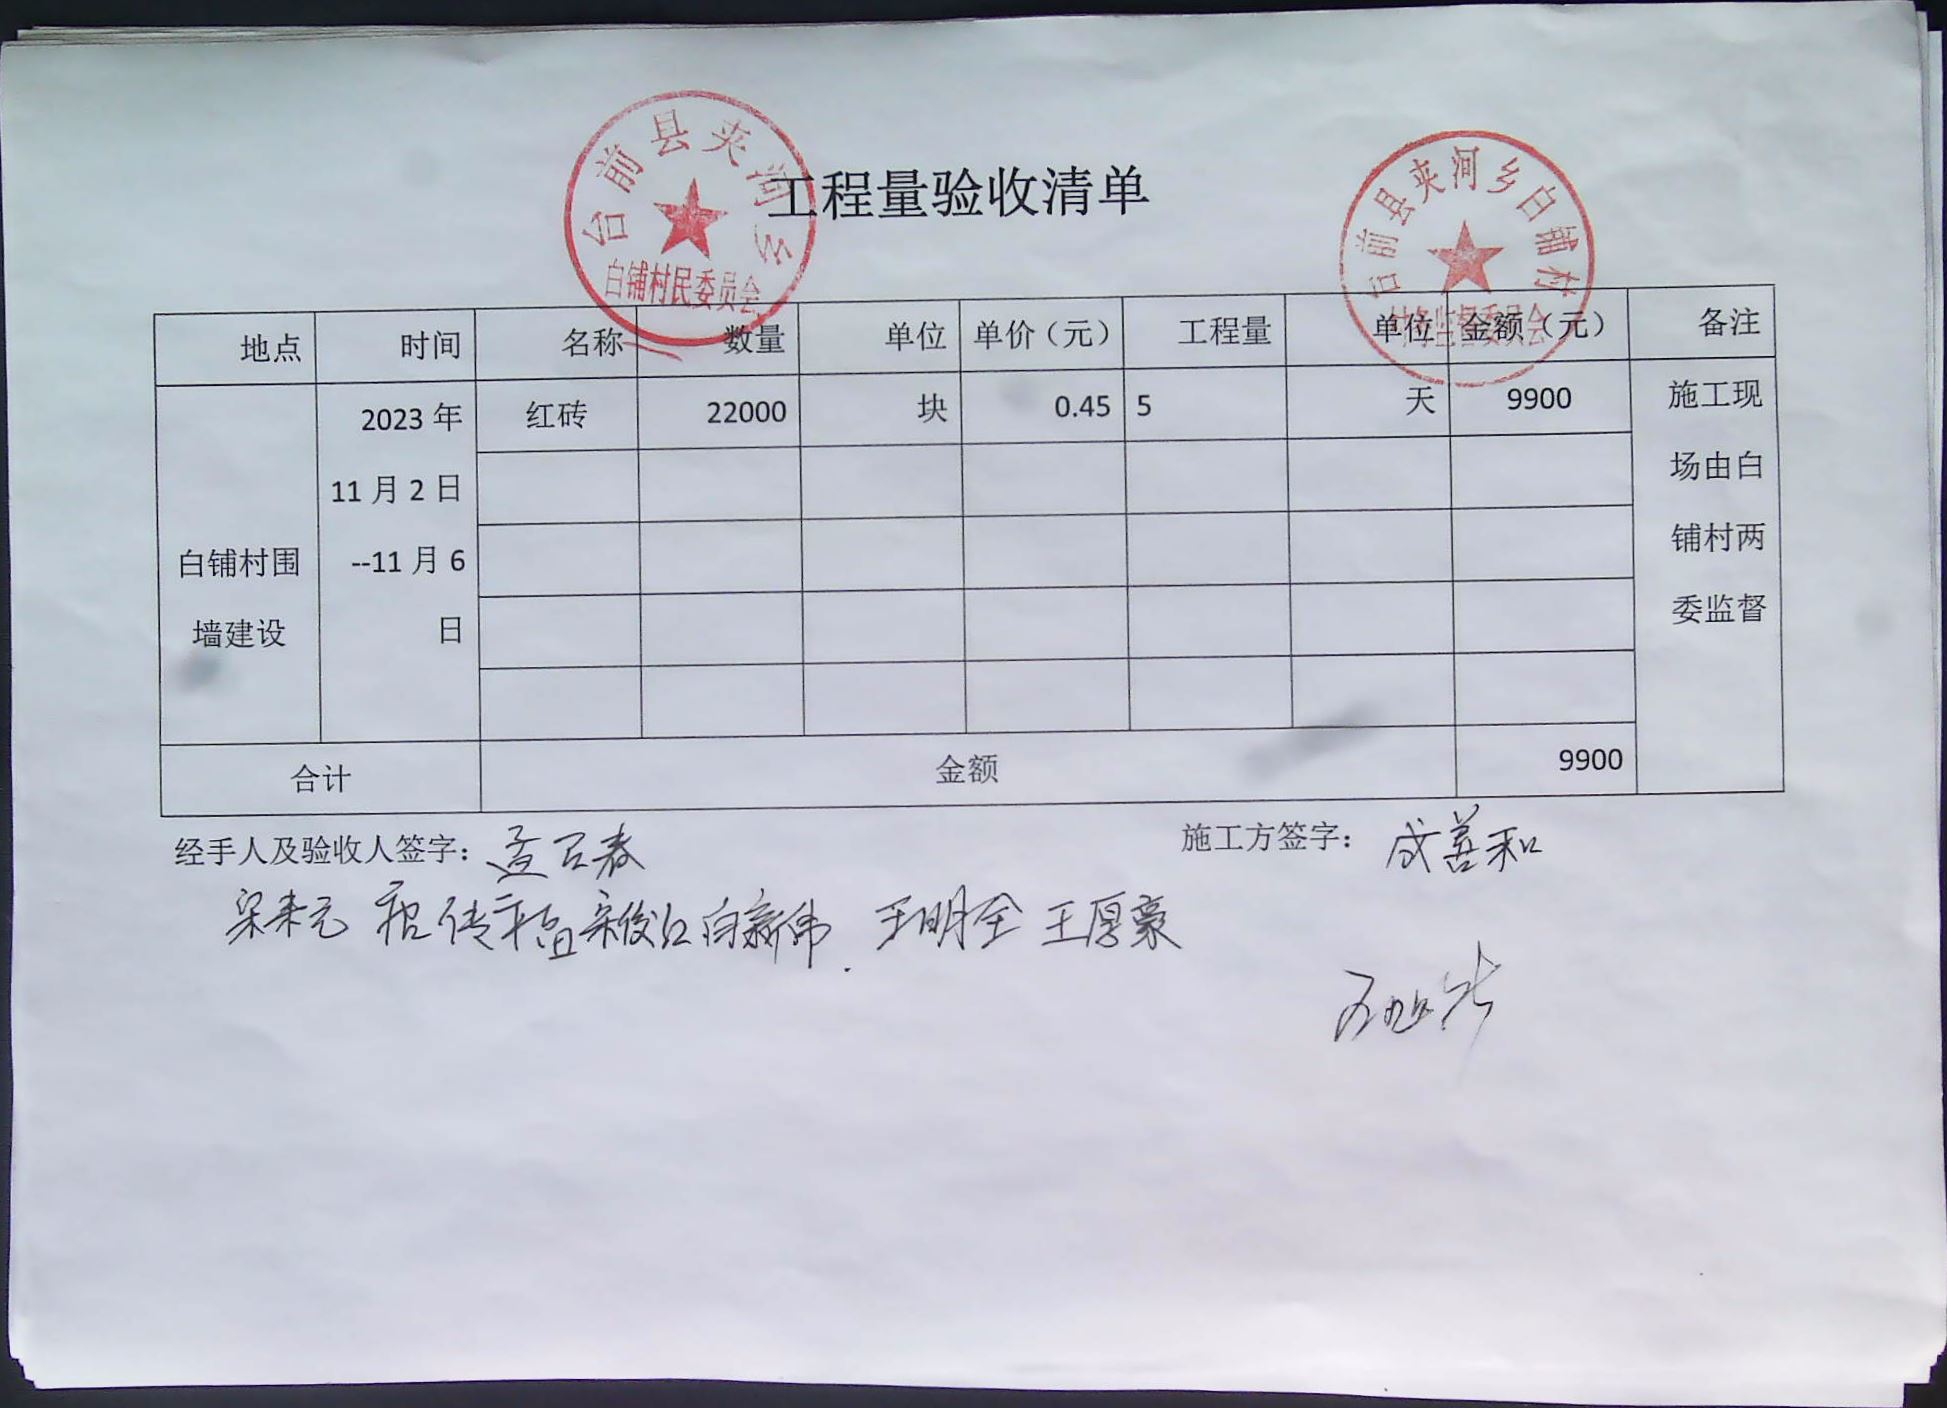 台前县夹河乡
白铺村民委员会
工程量验收清单
台前县夹河乡白铺村
村务监督委员会
地点 时间 名称 数量 单位 单价（元） 工程量 单位 金额（元） 备注
白铺村围
墙建设
2023 年
11 月 2 日
--11 月 6
日
红砖 22000 块 0.45 5 天 9900
施工现
场由白
铺村两
委监督
合计 金额 9900
经手人及验收人签字： 施工方签字： 成善和
白新伟 王明全 王厚豪